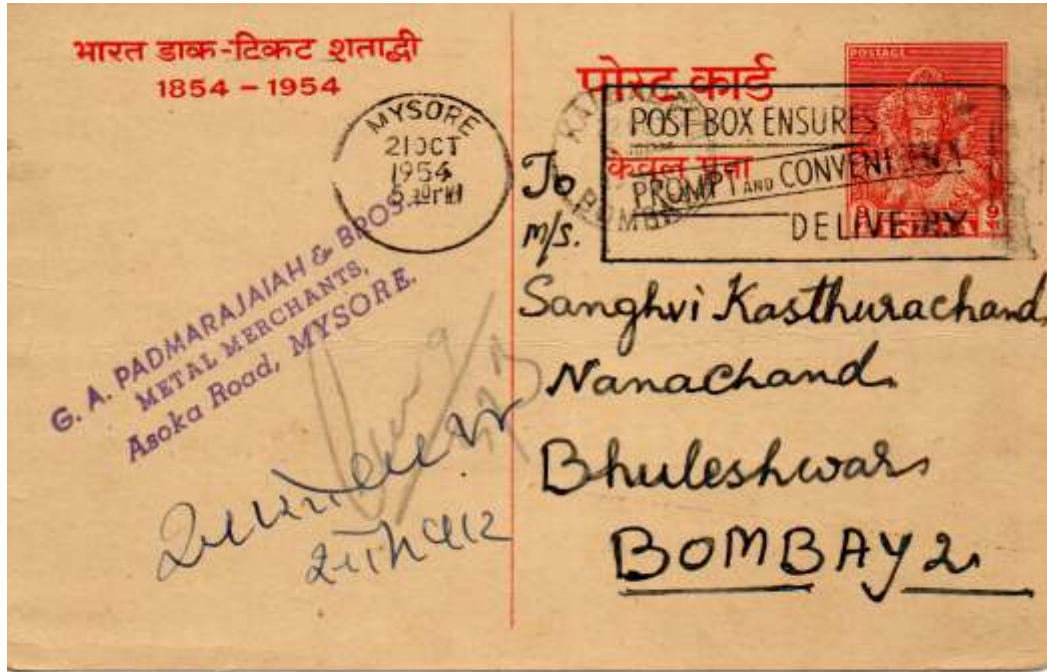 भारत डाक-टिकट शताब्दी
1854 - 1954
MYSORE
21 OCT
1954
G. A. PADMARAJAIAH & BROS.,
METAL MERCHANTS,
Asoka Road, MYSORE.
पोस्ट कार्ड
केवल पता
POSTAGE
POST BOX ENSURES
PROMPT AND CONVENIENT
DELIVERY
BOMBAY
To
M/s.
Sanghvi Kasthurachand
Nanachand
Bhuleshwar
BOMBAY 2